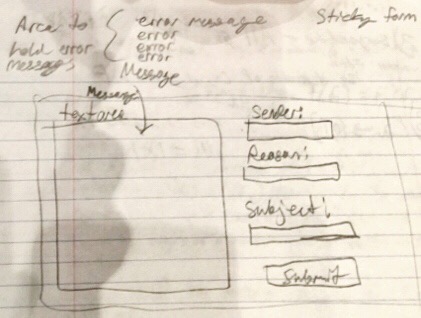 Area to
hold error
messages
error message
error
error
error
= Message
Sticky form
Message
textarea
Sender:
Reason:
Subject:
Submit